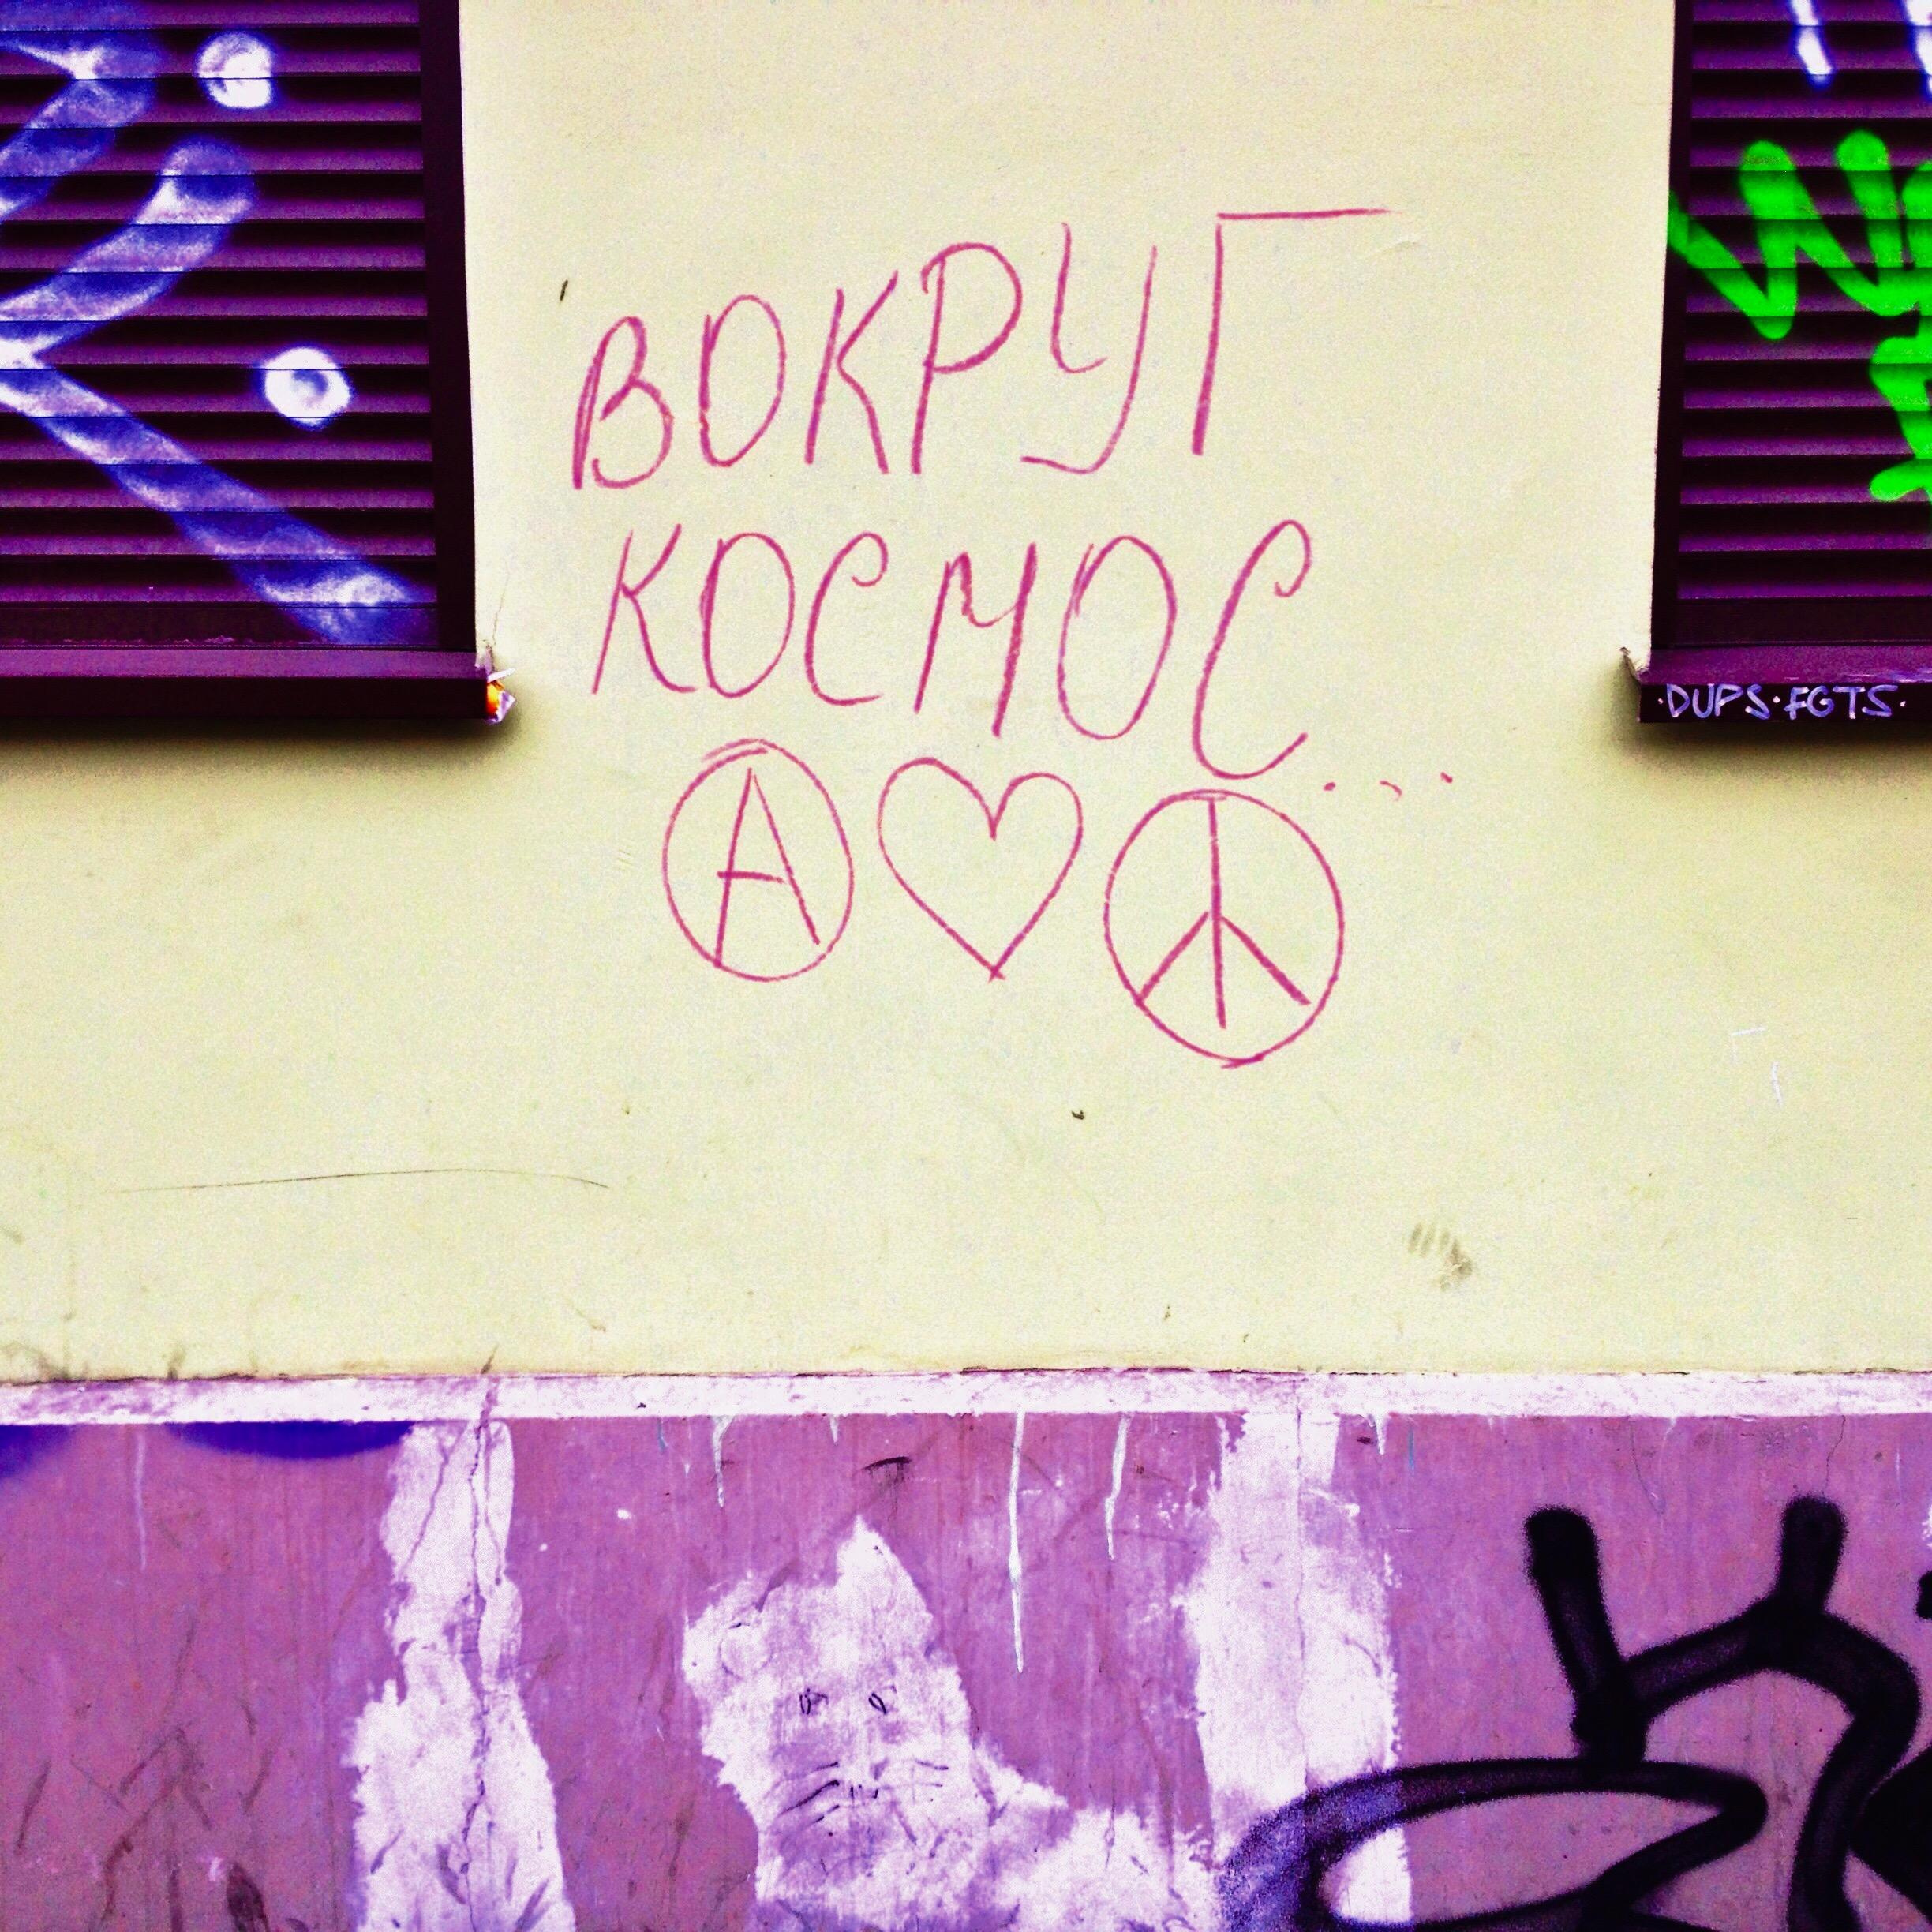 ВОКРУГ
КОСМОС...
A
·DUPS·FGTS·